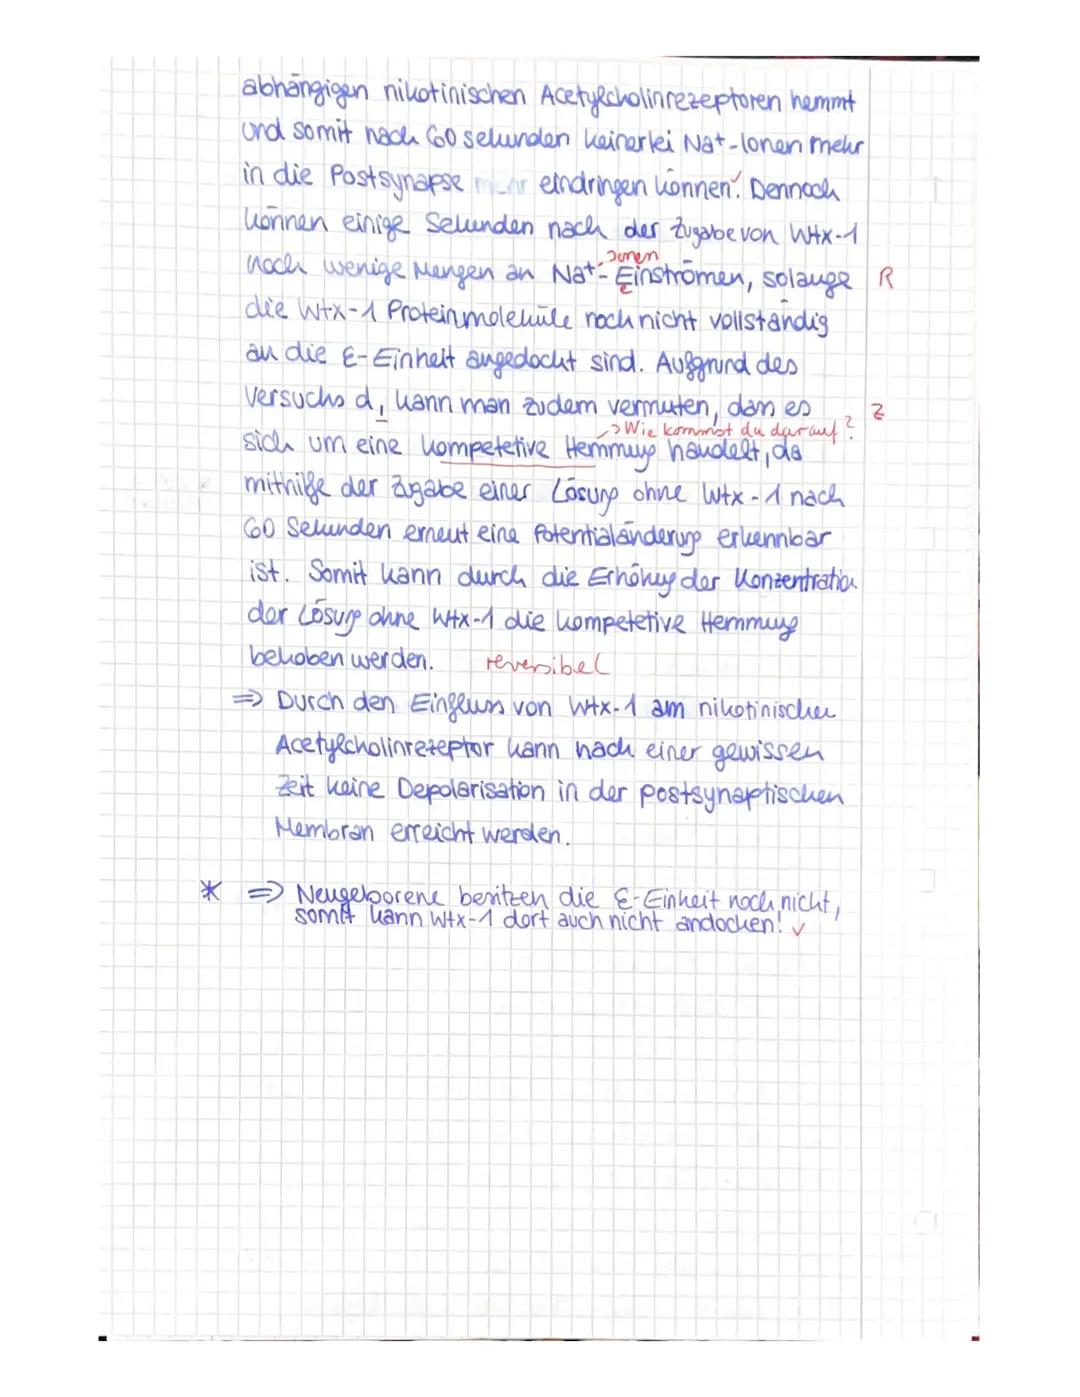 abhängigen nikotinischen Acetylcholinrezeptoren hemmt
und somit nach 60 sekunden keinerlei Na+-Ionen mehr
in die Postsynapse mehr eindringen können.✓ Dennoch
können einige Sekunden nach der Zugabe von Wtx-1
Ionen
noch wenige Mengen an Na+- Einströmen, solange R
e
die Wtx-1 Proteinmoleküle noch nicht vollständig
an die ε-Einheit angedockt sind. Aufgrund des
Versuchs d, kann man zudem vermuten, dass es Z
→ Wie kommst du darauf?
sich um eine kompetetive Hemmung handelt, da
mithilfe der Zugabe einer Lösung ohne Wtx-1 nach
60 Sekunden erneut eine Potentialänderung erkennbar
ist. Somit kann durch die Erhöhung der Konzentration
der Lösung ohne Wtx-1 die kompetetive Hemmung
behoben werden. reversibel
⇒ Durch den Einfluss von Wtx-1 am nikotinischen
Acetylcholinrezeptor kann nach einer gewissen
Zeit keine Depolarisation in der postsynaptischen
Membran erreicht werden.
* ⇒ Neugeborene besitzen die ε-Einheit noch nicht,
somit kann Wtx-1 dort auch nicht andocken! ✓